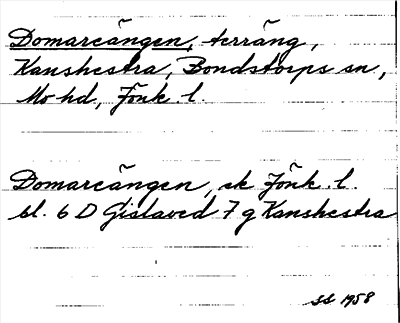 Domareängen, terräng,
Kanshestra, Bondstorps sn,
Mo hd, Jönk. l.
Domareängen, ek Jönk. l.
bl. 6 D Gislaved 7 g Kanshestra
SS 1958